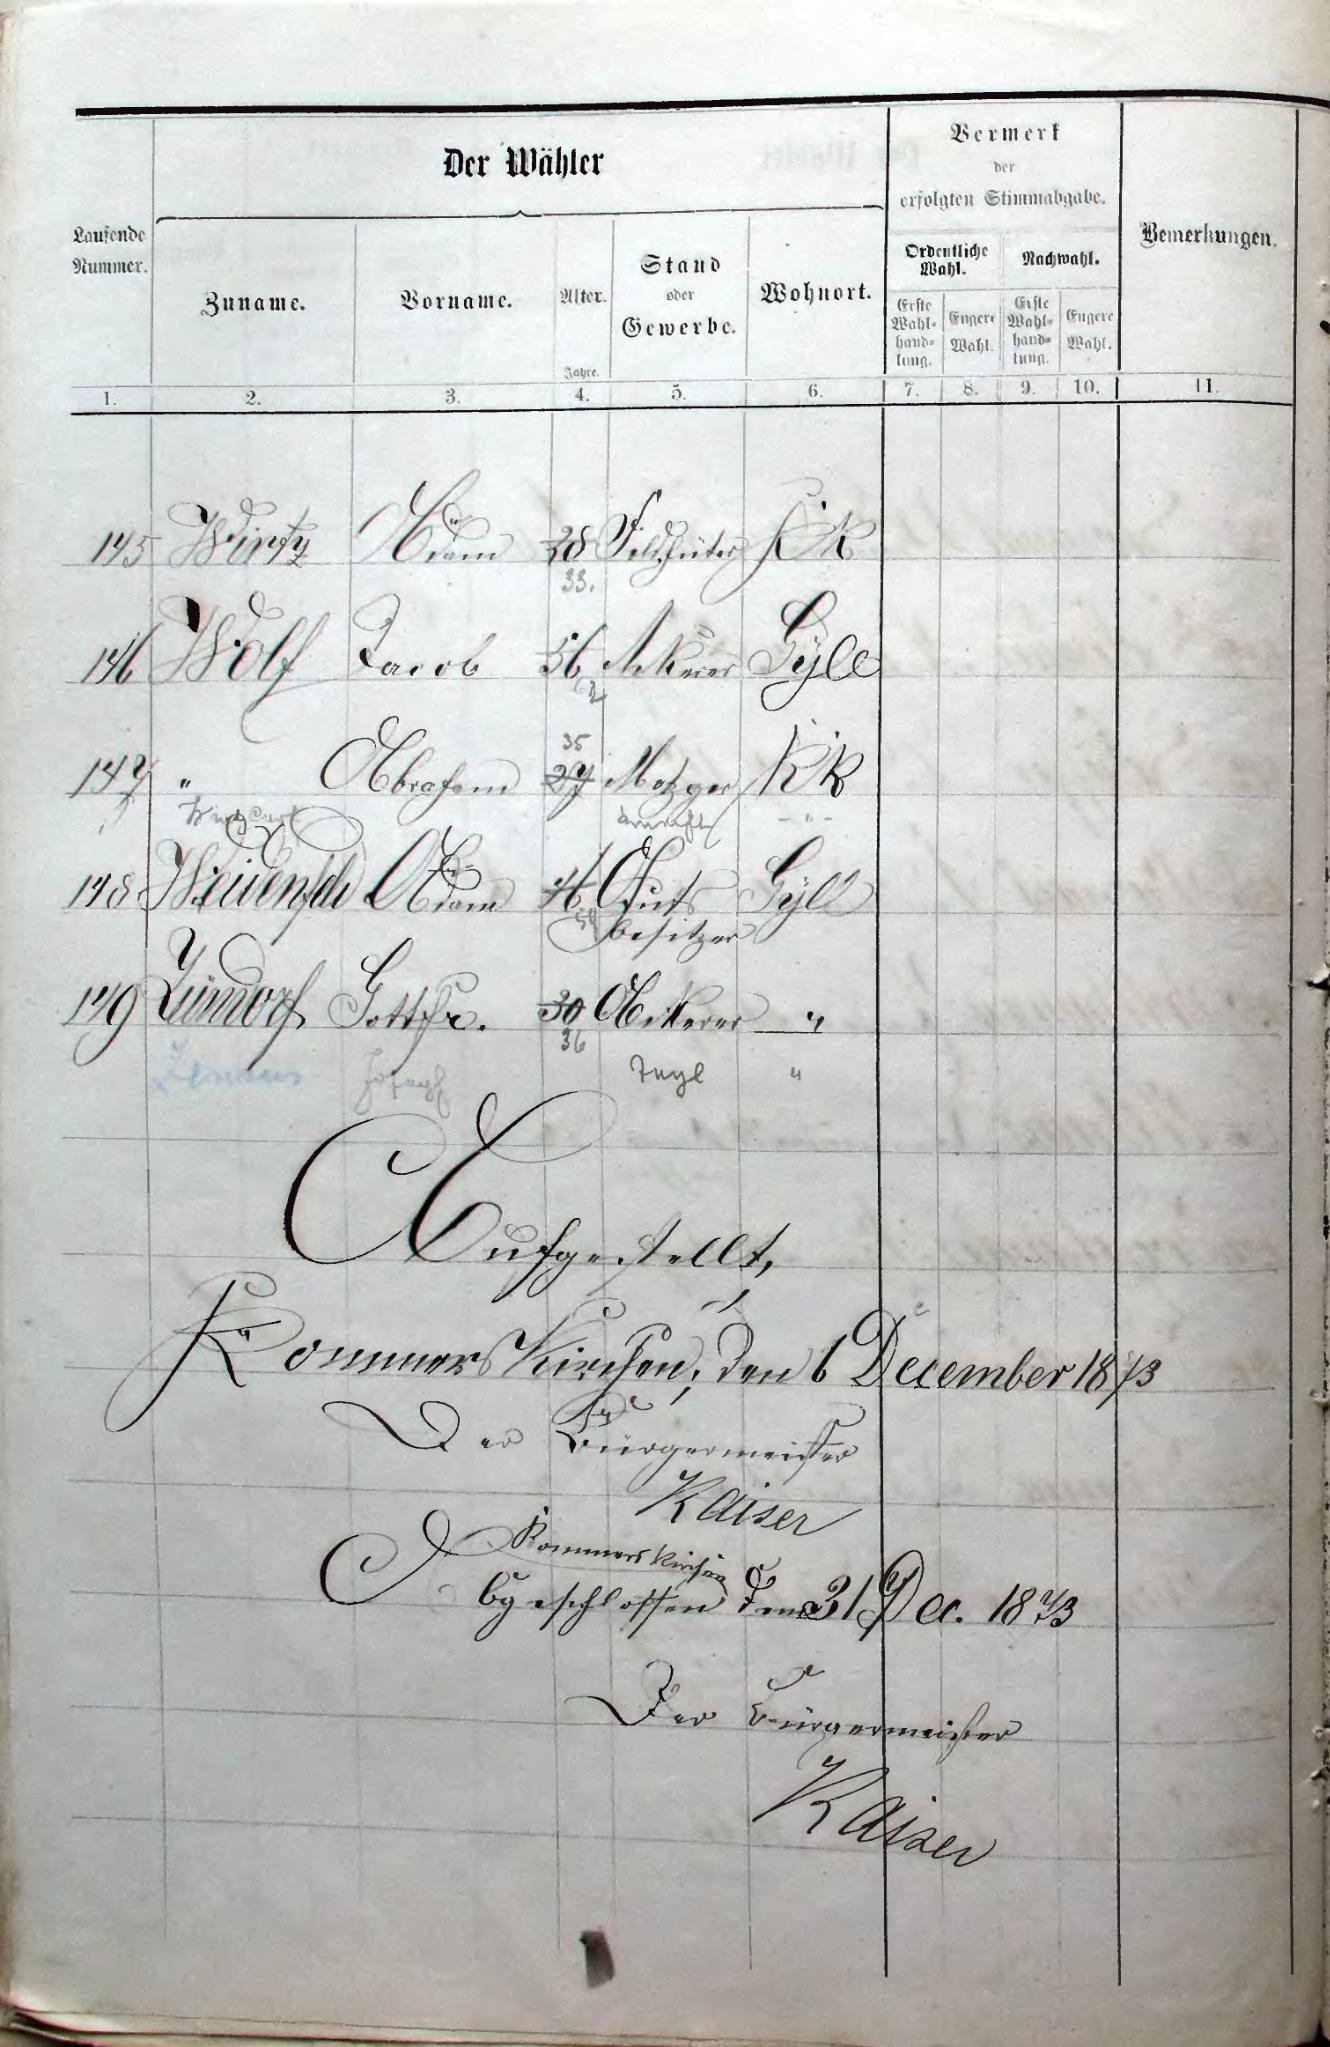 Der Wähler
Vermerk
der
erfolgten Stimmabgabe.
Laufende
Nummer.
Zuname.
Vorname.
Alter.
Jahre.
Stand
oder
Gewerbe.
Wohnort.
Ordentliche
Wahl.
Nachwahl.
Erste
Wahl-
hand-
lung.
Engere
Wahl.
Erste
Wahl-
hand-
lung.
Engere
Wahl.
Bemerkungen.
1. 2. 3. 4. 5. 6. 7. 8. 9. 10. 11.
145 Wirtz Adam 28 Feldhüter KK
33.
146 Wolf Jacob 56 Ackerer Gyll
35
147 " Abraham 27 Metzger KK
- " -
148 Adam 46 Guts Gyll
besitzer
149 Zündorf Gottfr. 30 Ackerer "
36
Joseph "
Aufgestellt,
Rommerskirchen, den 6 December 1873
Der Bürgermeister
Kaiser
Rommerskirchen
Abgeschlossen den 31 Dec. 1873
Der Bürgermeister
Kaiser